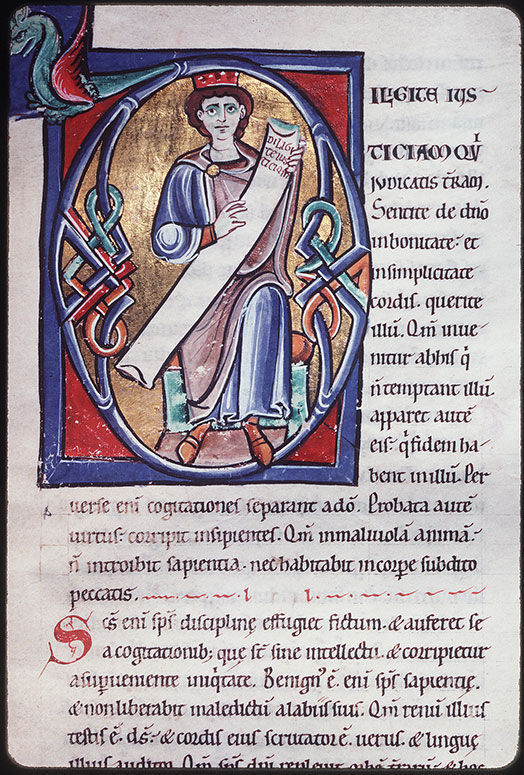 DILIGI
TE IUS
TICIAM
ILIGITE IUS~
TICIAM QVI
IVDICATIS T̄RAM.
Sentite de dn̄o
in bonitate· et
in simplicitate
cordis. querite
illū. Qm̄ inve-
nitur ab his q̇
n̄ temptant illū.
apparet autē
eis· q̇ fidem ha-
bent in illū. Per
verse enī cogitationes separant a dō. Probata autē
virtus· corripit insipientes. Qm̄ in malivolā animā·
n̄ introibit sapientia· nec habitabit in corpe subdito
peccatis.
Scs̄ enī sp̄s disciplinę effugiet fictum. & auferet se
a cogitationib; que st̄ sine intellectu. & corripietur
a superveniente iniq̇tate. Benign' ē enī sp̄s sapientię.
& non liberabit maledictū a labiis suis. Qm̄ renū illius
testis ē· ds̄· & cordis eius scrutator ē verus. & linguę
illius auditor. Qm̄ sp̄s dn̄i replevit